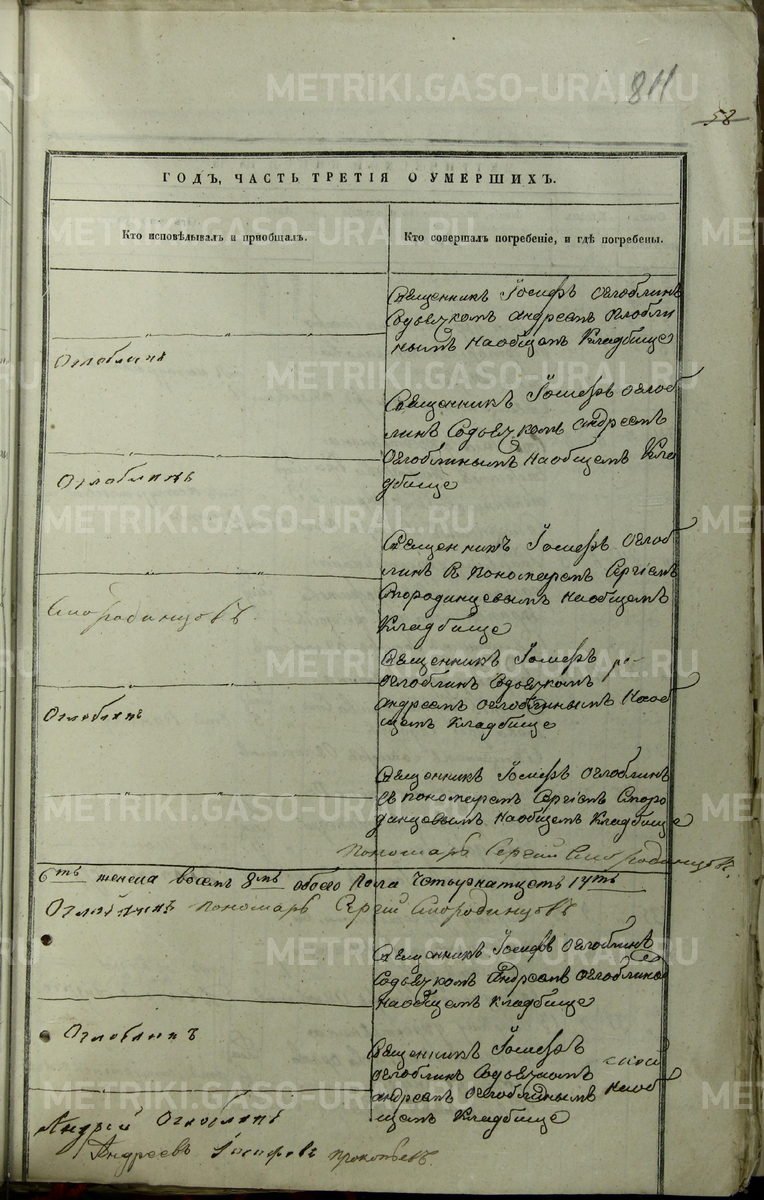 811
58
ГОДЪ, ЧАСТЬ ТРЕТІЯ О УМЕРШИХЪ.
Кто исповѣдывалъ и пріобщалъ.
Кто совершалъ погребеніе, и гдѣ погребены.
Священникъ Іосифъ Оглоблинъ
Содьячкомъ Андреемъ Оглобли
нымъ Наобщемъ Кладбище
Оглоблинъ
Священникъ Іосифъ Оглоб
линъ Содьячкомъ Андреемъ
Оглоблинымъ Наобщемъ Кла
дбище
Оглоблинъ
Священникъ Іосифъ Оглоб
линъ Пономаремъ Сергіемъ
Смородинцевымъ Наобщемъ
Кладбище
Смородинцовъ
Священникъ Іосифъ
Оглоблинъ Содьячкомъ
Андреемъ Оглоблинымъ Наоб
щемъ Кладбище
Оглоблинъ
Священникъ Іосифъ Оглоблинъ
съ пономаремъ Сергіемъ Сморо
динцовымъ Наобщемъ Кладбище
Пономарь Сергій Смородинцовъ.
6ть женска восемъ 8мь обоего Пола Четырнатцеть 14ть
Оглоблинъ Пономарь Сергій Смородинцовъ
Священникъ Іосифъ Оглоблинъ
Содьячкомъ Андреемъ
Наобщемъ Кладбище
Оглоблинъ
Священникъ Іосифъ
Оглоблинъ Содьячкомъ
Андреемъ Оглоблинымъ Наоб
щемъ Кладбище
Андрей Оглоблинъ
Андреевъ Іосифовъ Прокопьевъ.
METRIKI.GASO-URAL.RU